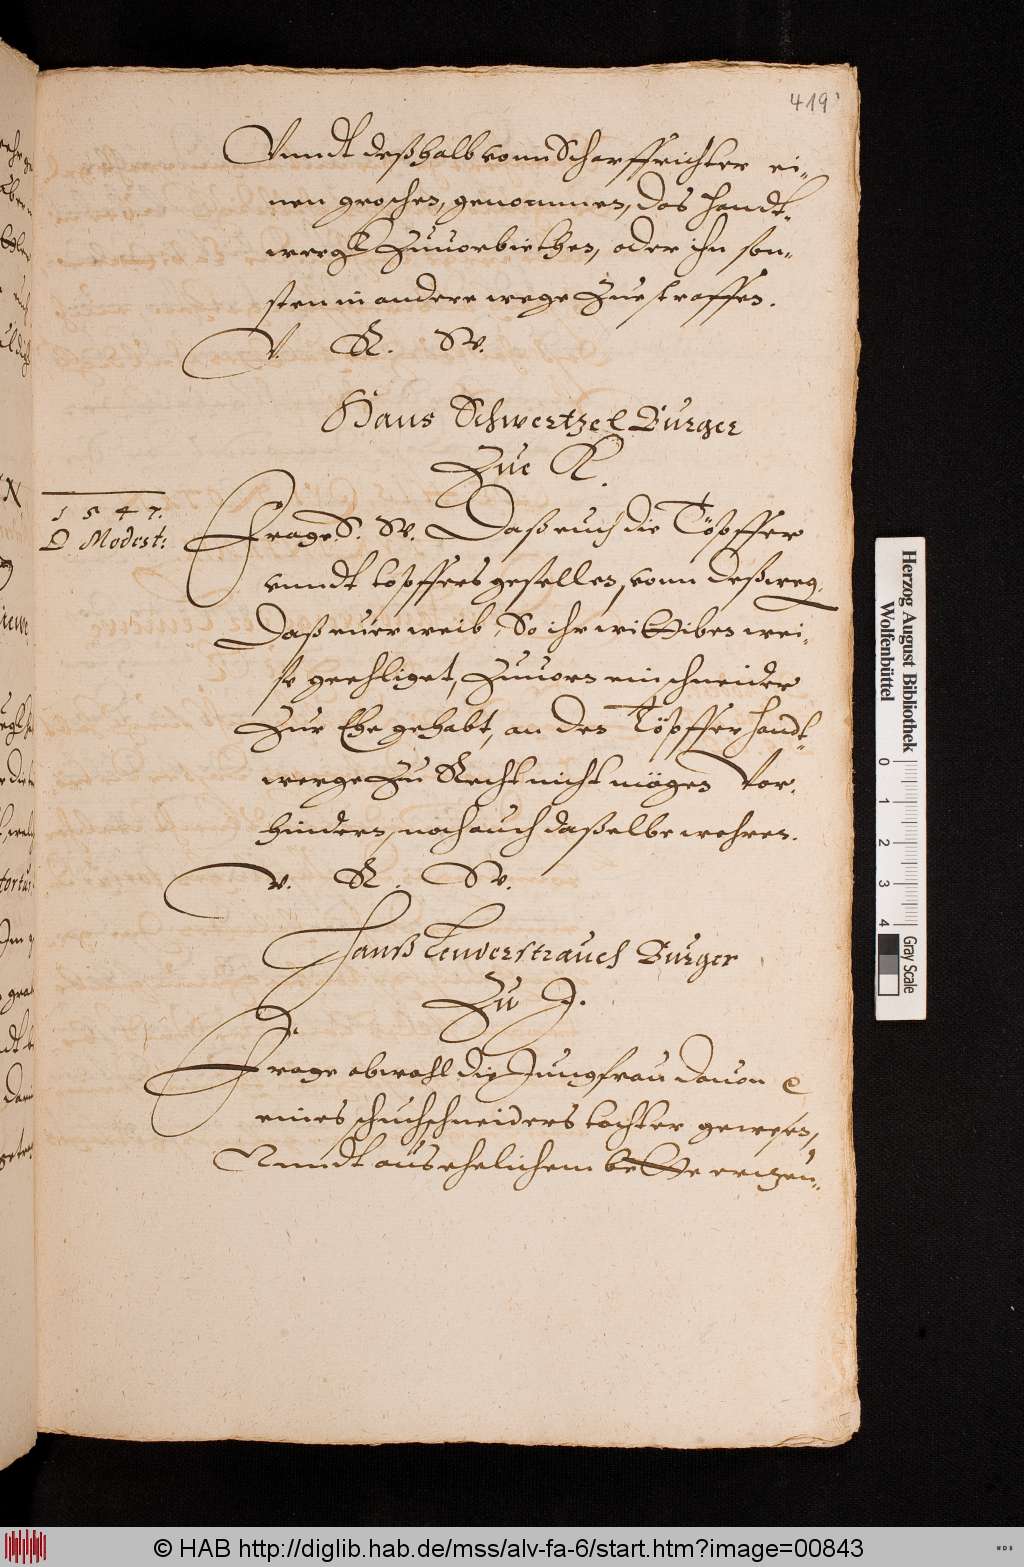 419
Vnndt deßhalb vonn Scharffrichter ei„
nen groschen, genommen, das Handt„
wergk Zuuorbiethen, oder ihn son„
sten in andere wege Zuestraffen.
V. R. W.
Hans Schwertzel Bürger
Zue K.
1547.
D Modest:
Frage S. W. Daß euch die Töpffer
vnndt topffers gesellen, vonn deßweg.
Daß euer weib, So ihr wittiben wei„
se geehliget, Zuuorn ein schneider
Zur Ehe gehabt, an den Töpffer Handt„
werge Zu Recht nicht mögen vor„
hindern, noch auch daßelbe wehren.
V. R. W.
Hanß Bürger
Zu J.
Frage obwohl die Jungfrau dauon e
eines schuchschneiders tochter gewesen,
Vnndt aus ehelichem bette erzeu„
Herzog August Bibliothek
Wolfenbüttel
0 1 2 3 4
Gray Scale
© HAB http://diglib.hab.de/mss/alv-fa-6/start.htm?image=00843